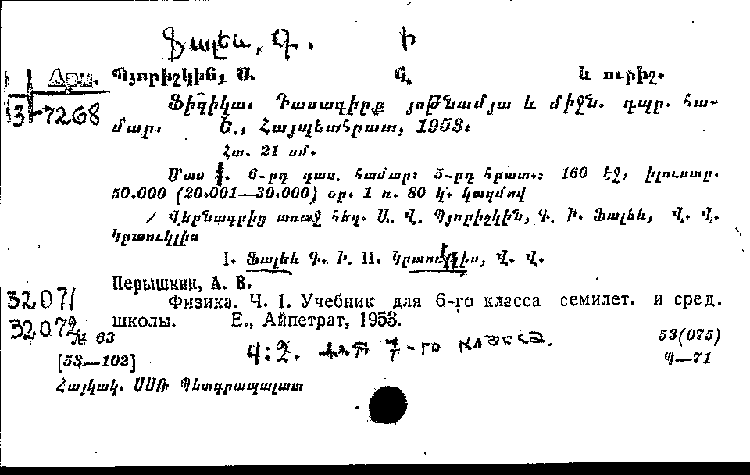 Ֆալեև, Գ. Ի
Արա. Պյորիշկին, Ա. Վ. և ուրիշ.
3-7268 Ֆիզիկա. Դասագիրք յոթնամյա և միջն. դպր. հա-
մար. Ե., Հայպետհրատ, 1953.
Հտ. 21 սմ.
Մաս 1. 6-րդ դաս. համար: 5-րդ հրատ.: 160 էջ, իլուստր.
50.000 (20.001—30.000) օր. 1 ռ. 80 կ. կազմով
Վերնագրից առաջ հեղ. Ա. Վ. Պյորիշկին, Գ. Ի. Ֆալեև, Վ. Վ.
Կրաուկլիս
I. Ֆալեև Գ. Ի. II. Կրաուկլիս, Վ. Վ.
Перышкин, А. В.
32071 Физика. Ч. I. Учебник для 6-го класса семилет. и сред.
32072 школы. Е., Айпетрат, 1953.
№ 63 53(075)
[53—102] Ч:2. для 7-го класса. Պ—71
Հայկակ. ՍՍՌ Պետգրապալատ